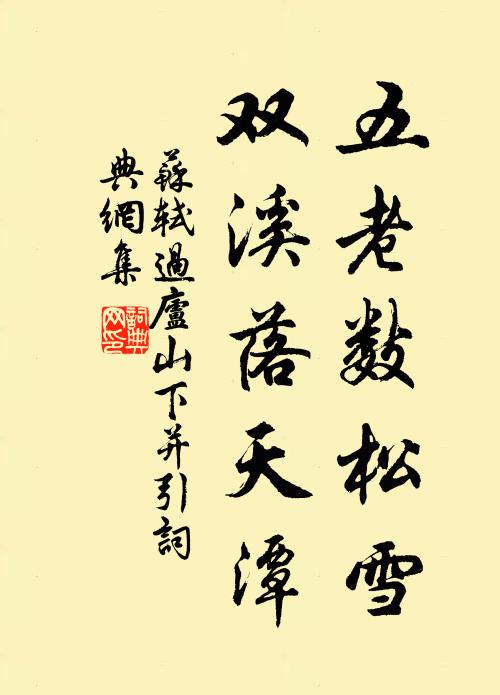 五老数松雪
双溪落天潭
蘇軾過廬山下并引詞
典網集
詞典网印